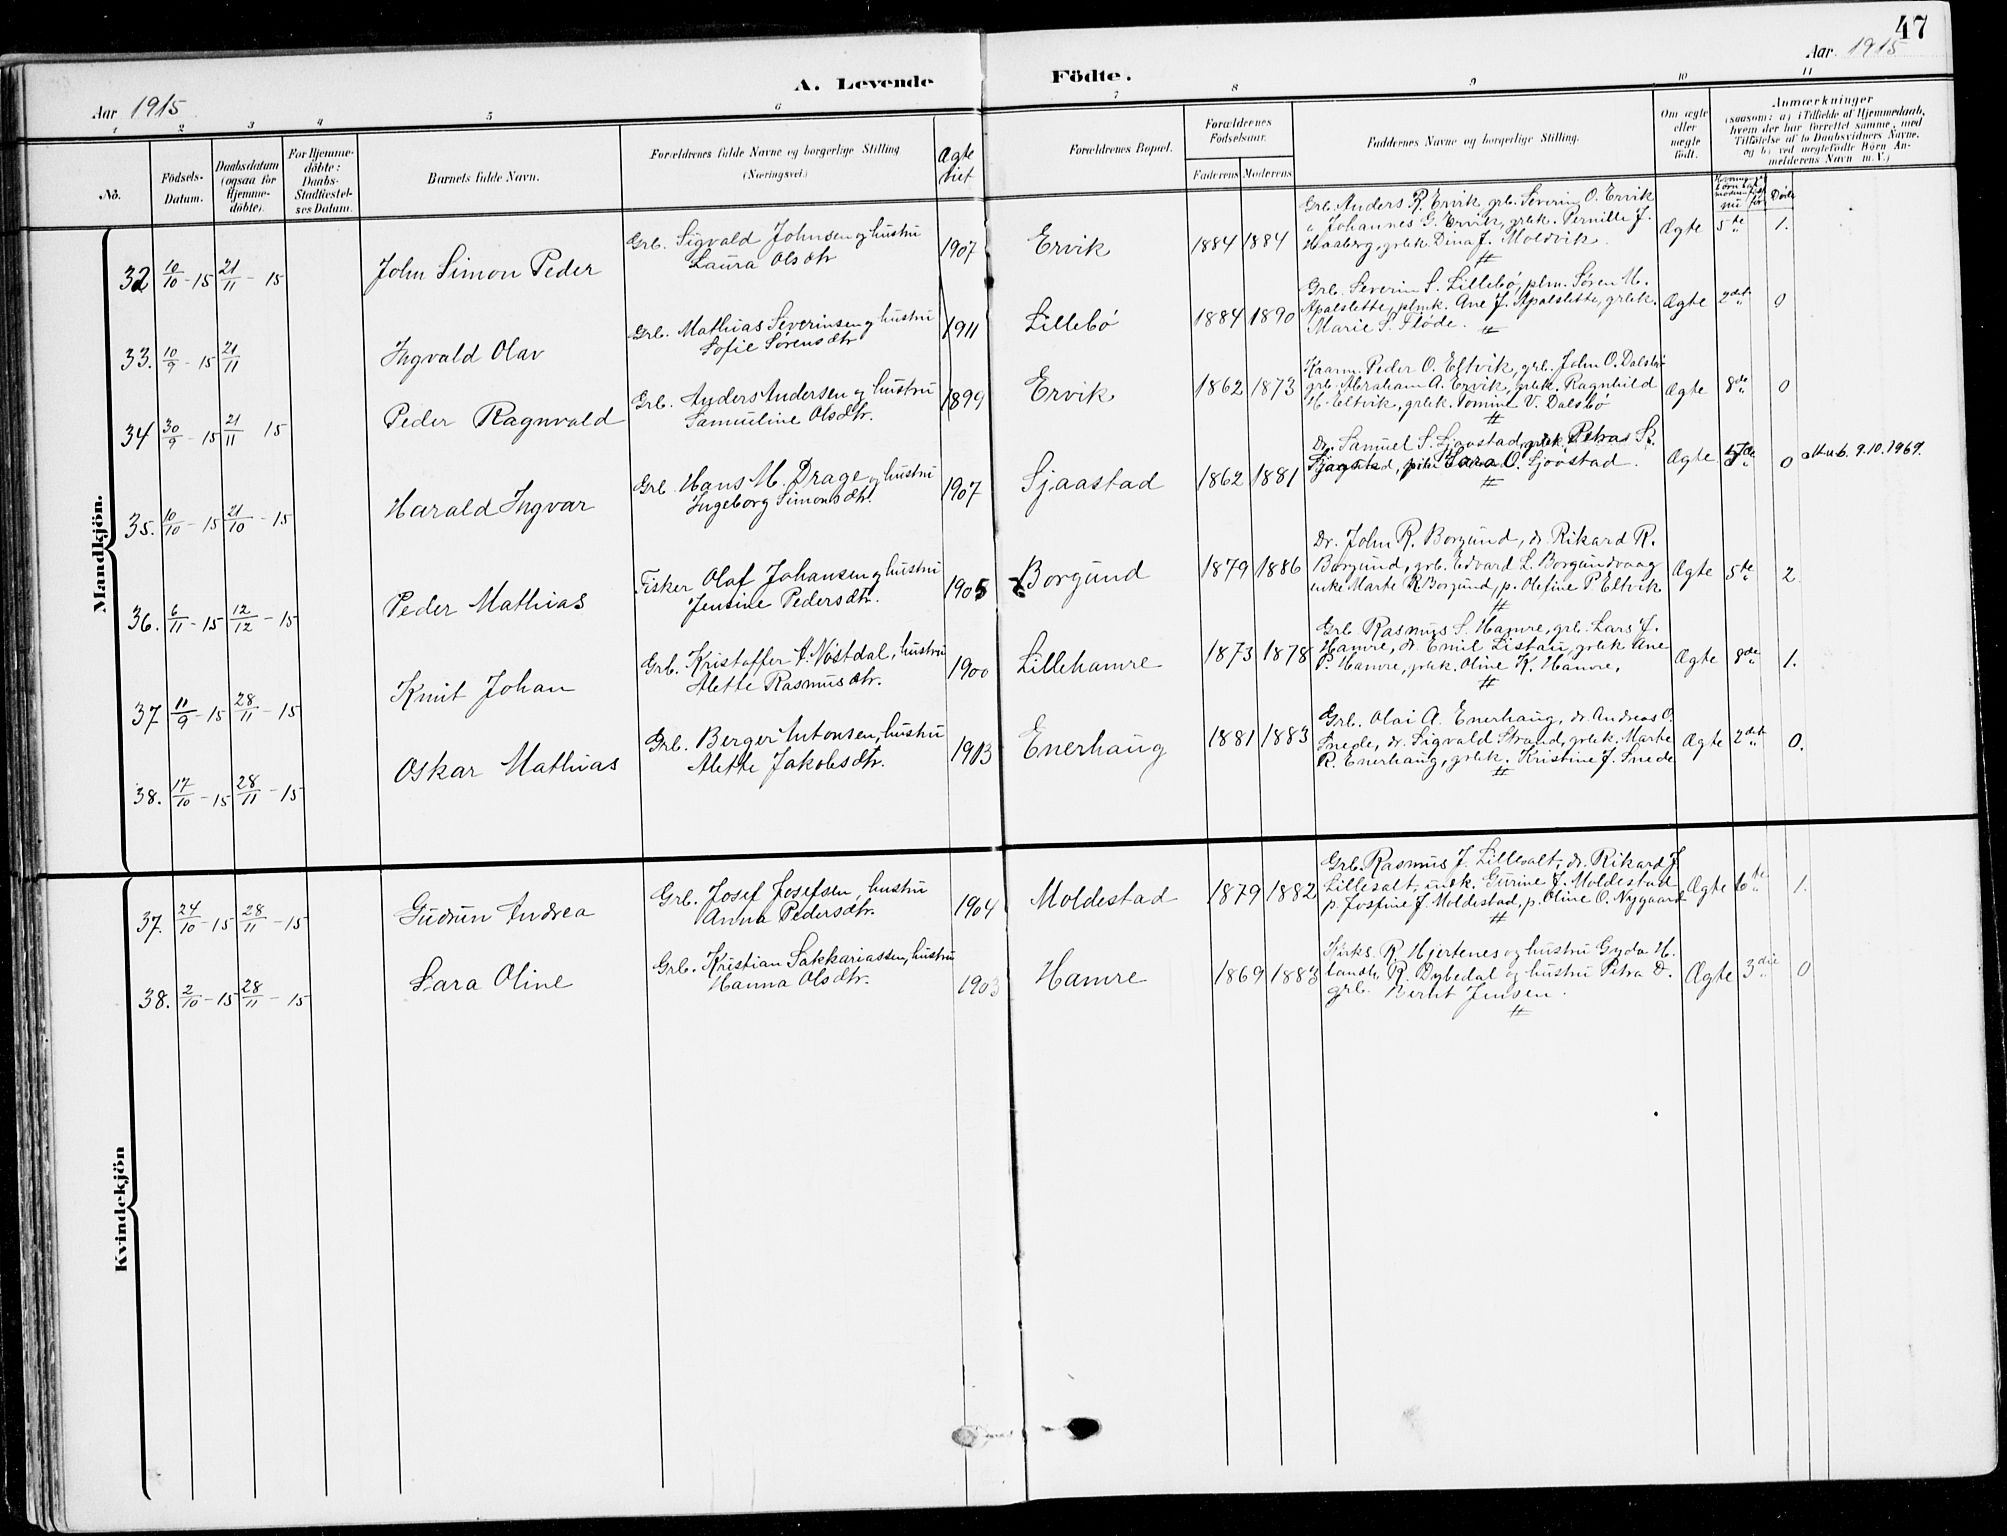 47
Aar. 1915
A. Levende Födte.
Aar 1915
1 2 3 4 5 6 7 8 9 10 11
No.
Födsels-
Datum.
Daabsdatum
(ogsaa for
Hjemme-
döbte).
For Hjemme-
döbte:
Daabs-
Stadfæstel-
ses Datum.
Barnets fulde Navn.
Forældrenes fulde Navne og borgerlige Stilling
(Næringsvei.)
Ægte
viet
Forældrenes Bopæl.
Forældrenes
Födselsaar.
Faderens Moderens
Faddernes Navne og borgerlige Stilling.
Om ægte
eller
uægte
födt.
Anmærkninger
(saasom: a) i Tilfælde af Hjemmedaab,
hvem der har forrettet samme, med
Tilföielse af to Daabsvidners Navne.
og b) ved uægtefödte Börn An-
melderens Navn m. V.)
Döde
Mandkjön.
32 10/10-15 21/11-15 John Simon Peder
Grb. Sigvald Johnsen og hustru
Laura Olsdtr
1907 Ervik 1884 1884
Grb. Anders R. Ervik, grb. Severin O. Ervik
" Johannes G. Ervik, grbk. Pernille J.
Haaberg, grbk. Dina J. Moldvik.
Ægte 5te 1.
33. 10/9-15 21/11 Ingvald Olav
Grb. Mathias Severinsen og hustru
Sofie Sörensdtr
1911 Lillebö 1884 1890
Grb. Severin S. Lillebö, plm. Sören M.
Apalslette, plmk. Ane J. Apalslette, grbk.
Marie S. Flöde.
Ægte 2det 0
34 30/9-15 21/11 15 Peder Ragnvald
Grb. Anders Andersen og hustru
Samuline Olsdtr.
1899 Ervik 1862 1873
Kaarm. Peder O. Eltvik, grb. John O. Dalsbö
grb. Abraham A. Ervik, grbk. Ragnhild
H. Eltvik, grbk. Tomine V. Dalsbö
Ægte 8de 0
35. 10/10-15 21/10-15 Harald Ingvar
Grb. Hans M. Drage og hustru
Ingeborg Simonsdtr.
1907 Sjaastad 1862 1881
Dr. Samuel S. Sjaastad, grbk. Petra S.
Sjaastad, Sara O. Sjöåstad.
Ægte 0 9.10.1969.
36. 6/11-15 12/12-15 Peder Mathias
Fisker Olaf Johansen og hustru
Jensine Pedersdtr.
1905 Borgund 1879 1886
Dr. John R. Borgund, dr. Rikard R.
Borgund, grb. Edvard L. Borgundvaag
enke Marte R Borgund, p. Olefine P. Eltvik
Ægte 5te 2
37 11/9-15 28/11-15 Knut Johan
Grb. Kristoffer A. Nöstdal, hustru
Alette Rasmusdtr.
1900 Lillehamre 1873 1878
Grb. Rasmus S. Hamre, grb. Lars J.
Hamre, dr. Emil Listau, grbk Ane
P. Hamre, grbk. Oline K. Hamre,
Ægte 8de 1.
38. 17/10-15 28/11-15 Oskar Mathias
Grb. Berger Antonsen, hustru
Alette Jakobsdtr.
1913 Enerhaug 1881 1883
Grb. Olai A. Enerhaug, dr. Andreas O.
Snede, dr. Sigvald Strand, grbk. Marte
R. Enerhaug, grbk. Kristine J. Snede
Ægte 2det 0.
Kvindekjön
37. 24/10-15 28/11-15 Gudrun Andrea
Grb. Josef Josefsen, hustru
Anna Pedersdtr.
1904 Moldestad 1879 1882
Grb. Rasmus J. Lillesalt, dr. Rikard J
Lillesalt, Gurine J. Moldestad
p. Josfine J. Moldestad, p. Oline O. Nygaard
Ægte 6te 1.
38. 2/10-15 28/11-15 Sara Oline
Grb. Kristian Sakkariassen, hustru
Hanna Olsdtr.
1903 Hamre 1869 1883
Kirks. R. Hjertenes og hustru Gyda H.
landh. R. Dybedal og hustru Petra D.
grb. Bernt Jensen.
Ægte 3die 0